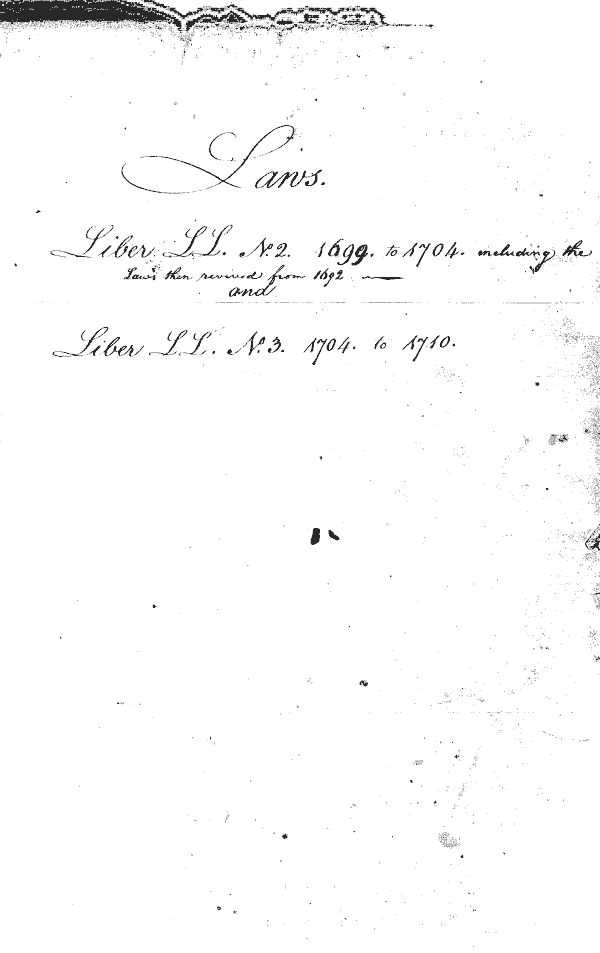 Laws.
Liber LL. No. 2. 1699. to 1704. including the
Laws then revived from 1692 —
and
Liber LL. No. 3. 1704. to 1710.